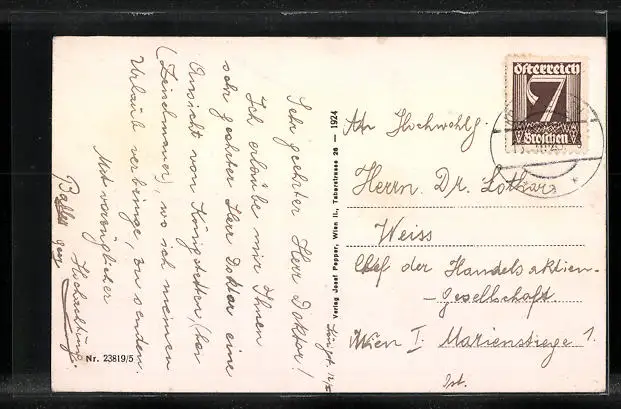 Sehr geehrter Herr Doktor!
Ich erlaube mir Ihnen
sehr geehrter Herr Doktor eine
Ansicht von Königstetten, (bei
(Zeiselmauer), wo ich meinen
Urlaub verbringe, zu senden.
Mit vorzüglicher
Hochachtung
Nr. 23819/5
Verlag Josef Popper, Wien II., Taborstrasse 26 — 1924
Österreich
7
Groschen
An Hochwohlg.
Herrn Dr. Lothar
Weiss
Chef der Handelsaktien-
-gesellschaft
Wien I. Marienstiege 1.